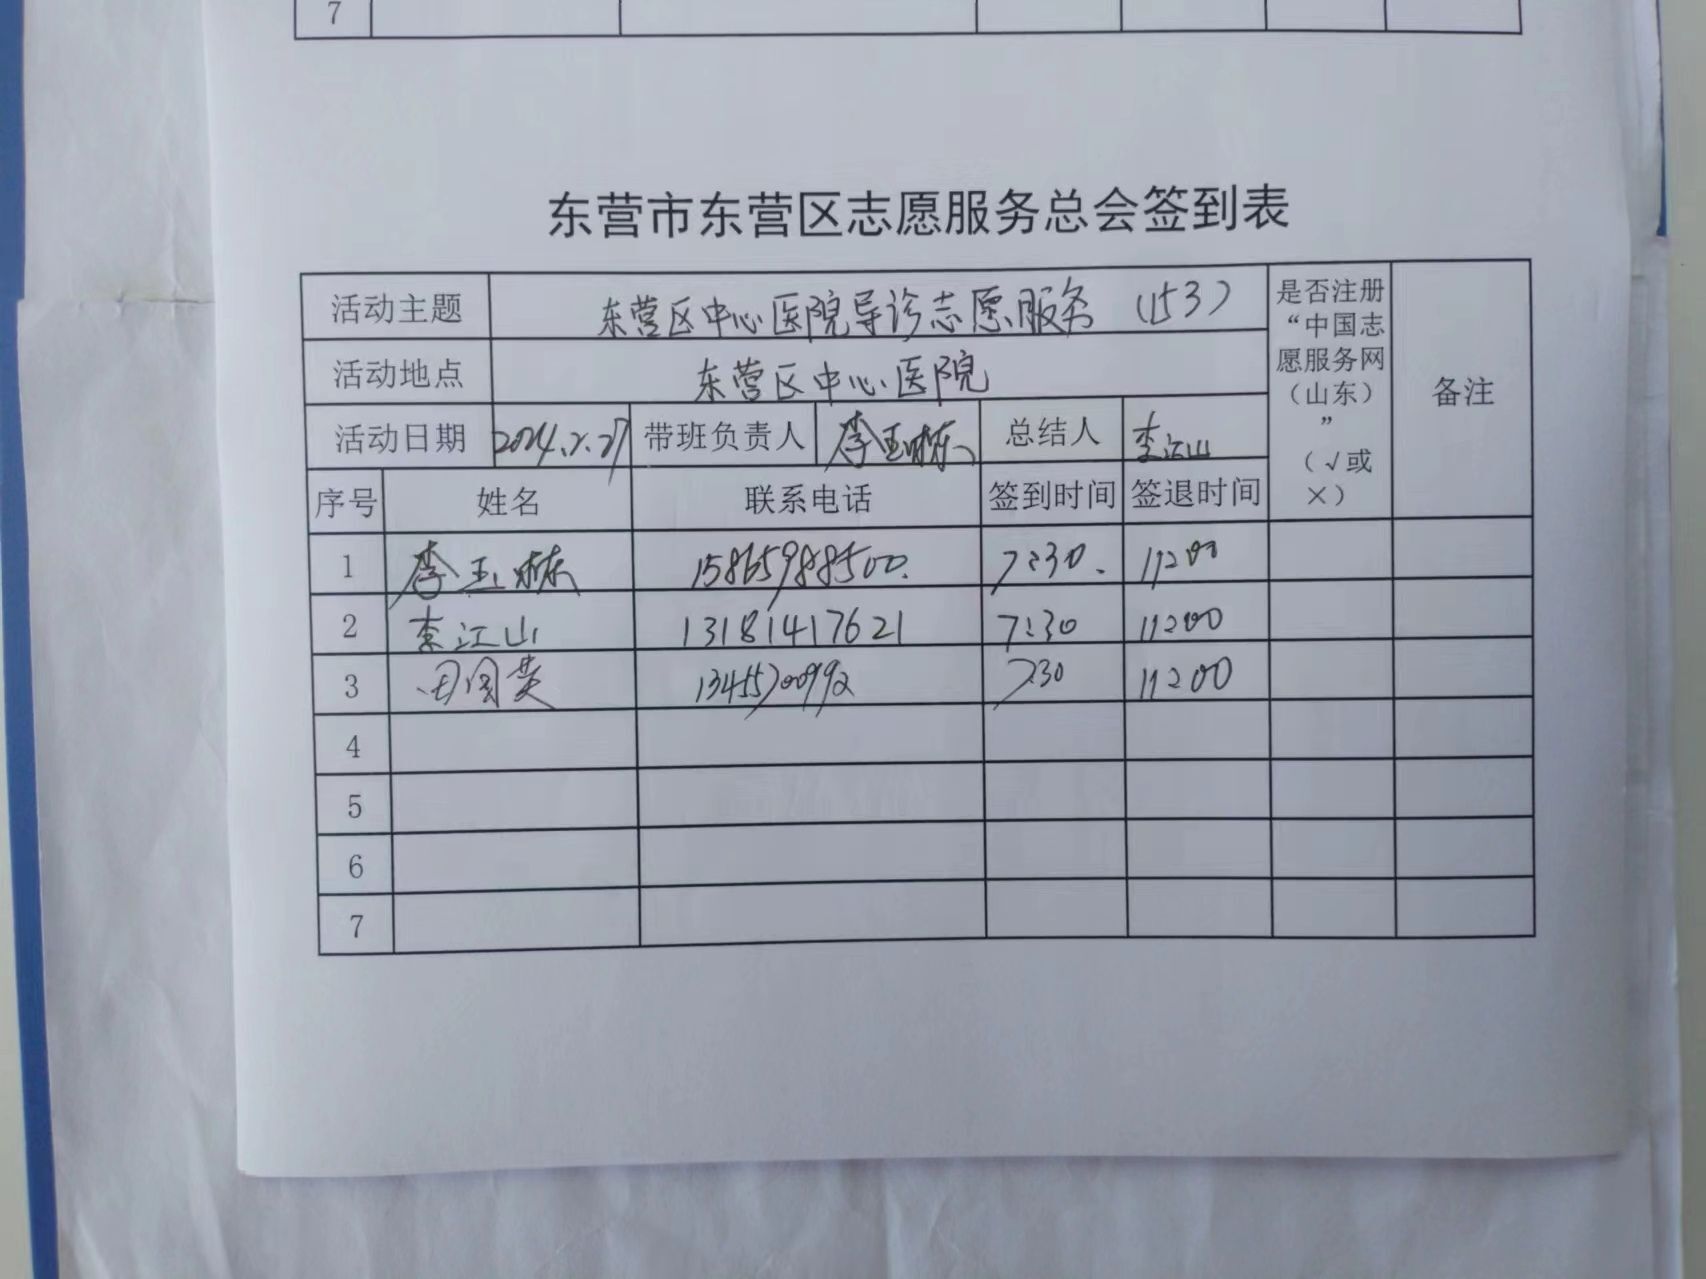 7
东营市东营区志愿服务总会签到表
活动主题 东营区中心医院导诊志愿服务（153） 是否注册“中国志愿服务网（山东）”（√或×） 备注
活动地点 东营区中心医院
活动日期 2024.2.27 带班负责人 李玉栋 总结人 李江山
序号 姓名 联系电话 签到时间 签退时间
1 李玉栋 15865988500. 7:30. 11:00
2 李江山 13181417621 7:30 11:00
3 田国英 13455700992 7:30 11:00
4
5
6
7